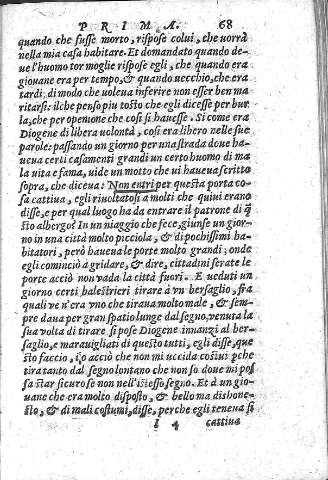 PRIMA. 68
quando che fusse morto, rispose colui, che uorrà
nella mia casa habitare. Et domandato quando de-
ue l'huomo tor moglie rispose egli, che quando era
giouane era per tempo, & quando uecchio, che era
tardi. di modo che uoleua inferire non esser ben ma
ritarsi: ilche penso piu tosto che egli dicesse per bur
la, che per openione che cosi si hauesse. Si come era
Diogene di libera uolontà, cosi era libero nelle sue
parole: passando un giorno per una strada doue ha-
ueua certi casamenti grandi un certo huomo di ma
la uita e fama, uide un motto che ui haueua scritto
sopra, che diceua: Non entri per questa porta co-
sa cattiua, egli riuoltatosi a molti che quiui erano
disse, e per qual luogo ha da entrare il patrone di q̃
sto albergo? In un uiaggio che fece, giunse un gior-
no in una città molto picciola, & di pochissimi ha-
bitatori, però haueua le porte molto grandi, onde
egli cominciò a gridare, & dire, cittadini serate le
porte acciò non uada la città fuori. E ueduti un
giorno certi balestrieri tirare à un bersaglio, fra
quali ve n'era vno che tiraua molto male, & sem-
pre daua per gran spatio lunge dal segno, venuta la
sua volta di tirare si pose Diogene innanzi al ber-
saglio, e marauigliati di questo tutti, egli disse, que
sto faccio, io acciò che non mi uccida costui p̱che
tira tanto dal segno lontano che non so doue mi pos
sa star sicuro se non nell'istesso segno. Et à un gio-
uane che era molto disposto, & bello ma dishone-
sto, & di mali costumi, disse, perche egli teneua si
I 4 cattiua